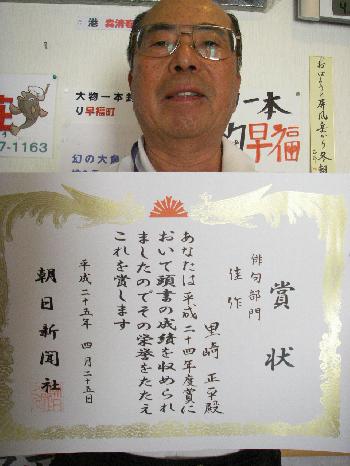 港
大物一本
り早福町
幻の大
一本
早福
7-1163
賞状
俳句部門
佳作
里﨑 正 殿
あなたは平成二十四年度賞に
おいて頭書の成績を収められ
ましたのでその栄誉をたたえ
これを賞します
平成二十五年 四月二十五日
朝日新聞社